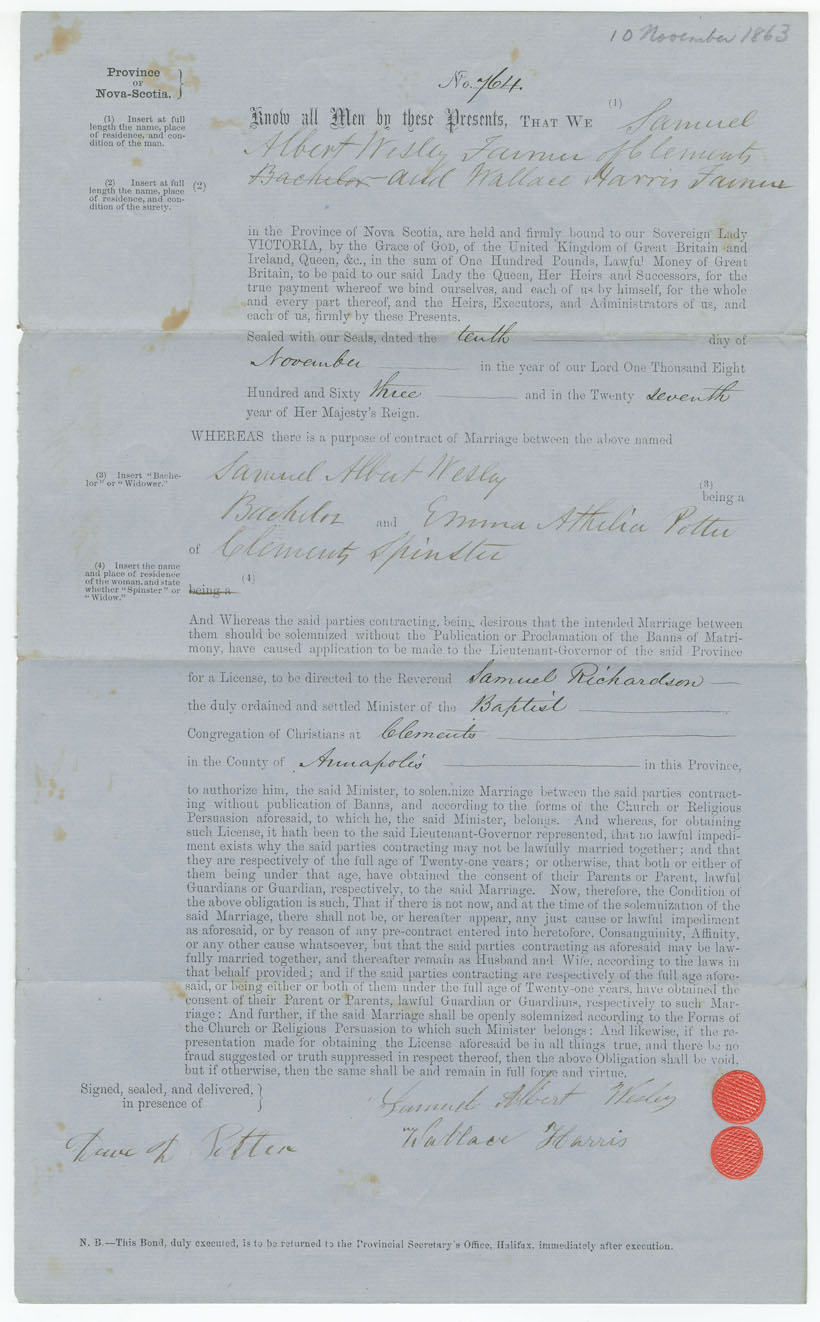 10 November 1863
Province
OF
Nova-Scotia.
No. 764.
(1) Insert at full
length the name, place
of residence, and con-
dition of the man.
Know all Men by these Presents, THAT WE (1) Samuel
Albert Wesley Farmer of Clements
(2) Insert at full
length the name, place
of residence, and con-
dition of the surety.
(2) Bachelor and Wallace Harris Farmer
in the Province of Nova Scotia, are held and firmly bound to our Sovereign Lady
VICTORIA, by the Grace of GOD, of the United Kingdom of Great Britain and
Ireland, Queen, &c., in the sum of One Hundred Pounds, Lawful Money of Great
Britain, to be paid to our said Lady the Queen, Her Heirs and Successors, for the
true payment whereof we bind ourselves, and each of us by himself, for the whole
and every part thereof, and the Heirs, Executors, and Administrators of us, and
each of us, firmly by these Presents.
Sealed with our Seals, dated the tenth day of
November in the year of our Lord One Thousand Eight
Hundred and Sixty three and in the Twenty seventh
year of Her Majesty's Reign.
WHEREAS there is a purpose of contract of Marriage between the above named
(3) Insert "Bache-
lor" or "Widower."
Samuel Albert Wesley
(3)
being a
Bachelor and Emma Athelia Potter
of Clements Spinster
(4) Insert the name
and place of residence
of the woman, and state
whether "Spinster" or
"Widow."
being a (4)
And Whereas the said parties contracting, being desirous that the intended Marriage between
them should be solemnized without the Publication or Proclamation of the Banns of Matri-
mony, have caused application to be made to the Lieutenant-Governor of the said Province
for a License, to be directed to the Reverend Samuel Richardson
the duly ordained and settled Minister of the Baptist
Congregation of Christians at Clements
in the County of Annapolis in this Province,
to authorize him, the said Minister, to solemnize Marriage between the said parties contract-
ing without publication of Banns, and according to the forms of the Church or Religious
Persuasion aforesaid, to which he, the said Minister, belongs. And whereas, for obtaining
such License, it hath been to the said Lieutenant-Governor represented, that no lawful impedi-
ment exists why the said parties contracting may not be lawfully married together; and that
they are respectively of the full age of Twenty-one years; or otherwise, that both or either of
them being under that age, have obtained the consent of their Parents or Parent, lawful
Guardians or Guardian, respectively, to the said Marriage. Now, therefore, the Condition of
the above obligation is such, That if there is not now, and at the time of the solemnization of the
said Marriage, there shall not be, or hereafter appear, any just cause or lawful impediment
as aforesaid, or by reason of any pre-contract entered into heretofore, Consanguinity, Affinity,
or any other cause whatsoever, but that the said parties contracting as aforesaid may be law-
fully married together, and thereafter remain as Husband and Wife, according to the laws in
that behalf provided; and if the said parties contracting are respectively of the full age afore-
said, or being either or both of them under the full age of Twenty-one years, have obtained the
consent of their Parent or Parents, lawful Guardian or Guardians, respectively to such Mar-
riage: And further, if the said Marriage shall be openly solemnized according to the Forms of
the Church or Religious Persuasion to which such Minister belongs: And likewise, if the re-
presentation made for obtaining the License aforesaid be in all things true, and there be no
fraud suggested or truth suppressed in respect thereof, then the above Obligation shall be void,
but if otherwise, then the same shall be and remain in full force and virtue.
Signed, sealed, and delivered,
in presence of
Samuel Albert Wesley
Wallace Harris
Potter
N. B.—This Bond, duly executed, is to be returned to the Provincial Secretary's Office, Halifax, immediately after execution.